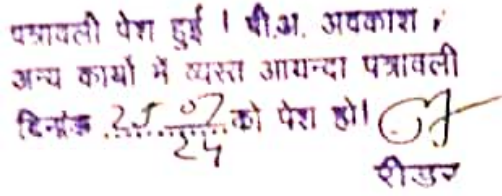 पत्रावली पेश हुई । पी.अ. अवकाश ,
अन्य कार्यो में व्यस्त आयन्दा पत्रावली
दिनांक 25 07 को पेश हो।
24
रीडर